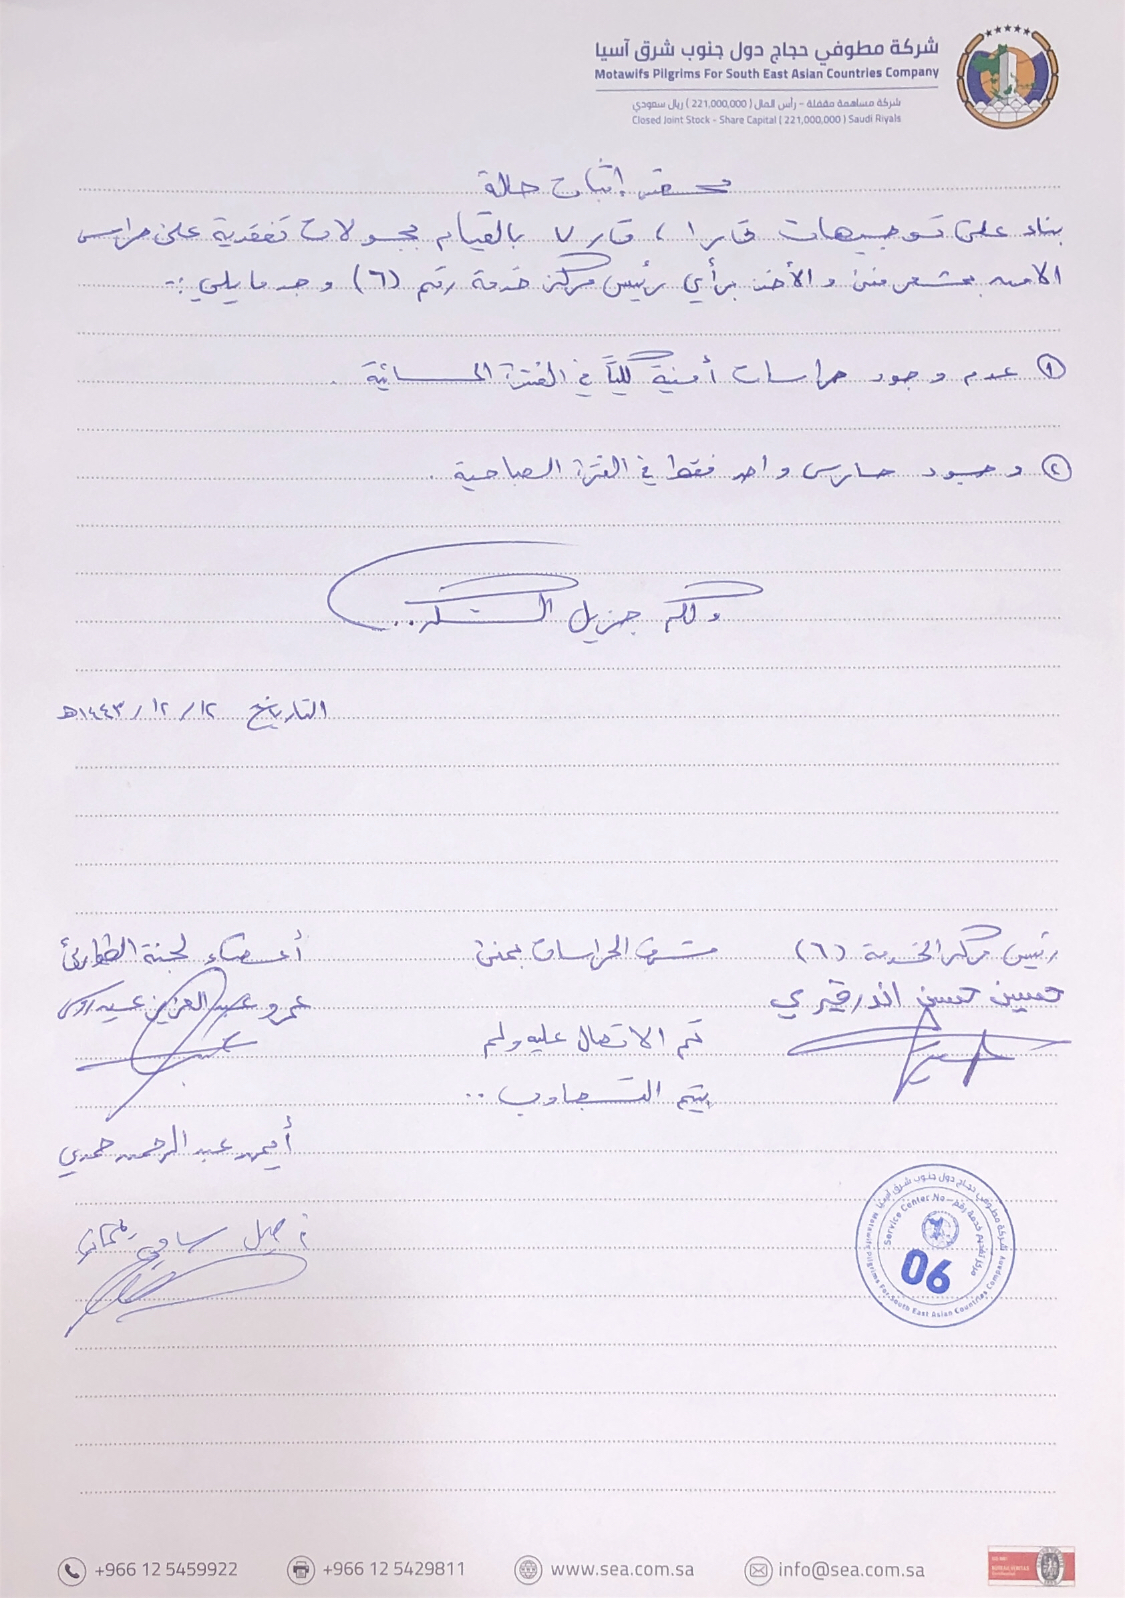 شركة مطوفي حجاج دول جنوب شرق آسيا
Motawifs Pilgrims For South East Asian Countries Company
شركة مساهمة مقفلة - رأس المال ( 221,000,000 ) ريال سعودي
Closed Joint Stock - Share Capital ( 221,000,000 ) Saudi Riyals
محضر إثبات حالة
بناء على توجيهات قار ١ ، قار ٧ بالقيام بجولات تفقدية على حراس
الامن بمشعر منى و الأخذ برأي رئيس مركز خدمة رقم (٦) وجد ما يلي :-
١ عدم وجود حراسات أمنية كلياً في الفترة المسائية .
٢ وجود حارس واحد فقط في الفترة الصباحية .
ولكم جزيل الشكر ..
التاريخ ١٢ / ١٢ / ١٤٤٣هـ
رئيس مركز الخدمة (٦) مشرف الحراسات بمنى أعضاء لجنة الطوارئ
حسين حسن اندرقيري عمرو عبد العزيز
تم الاتصال عليه ولم
يتم التجاوب ..
أيمن عبد الرحمن حمدي
سامي
شركة مطوفي حجاج دول جنوب شرق آسيا
مركز تقديم خدمة رقم
Service Center No
06
Motawifs Pilgrims For South East Asian Countries Company
+966 12 5459922 +966 12 5429811 www.sea.com.sa info@sea.com.sa
BUREAU VERITAS